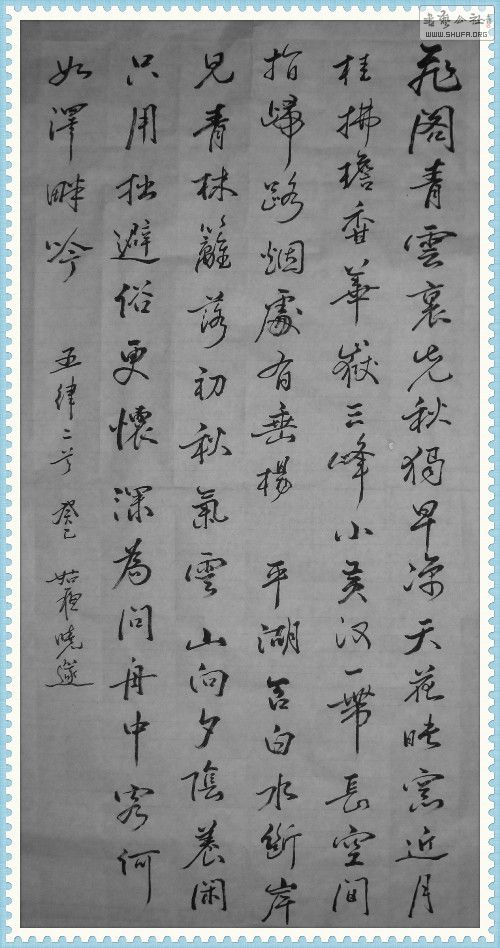 書藝公社
WWW.SHUFA.ORG
飛閣青雲裏先秋獨早涼天花映窗近月
桂拂檐香華嶽三峰小黃河一帶長空間
指歸路烟處有垂楊 平湖含白水斷岸
見青林籬落初秋氣雲山向夕陰養閑
只用拙避俗更懷深為問舟中客何
如澤畔吟 五律二首 癸巳